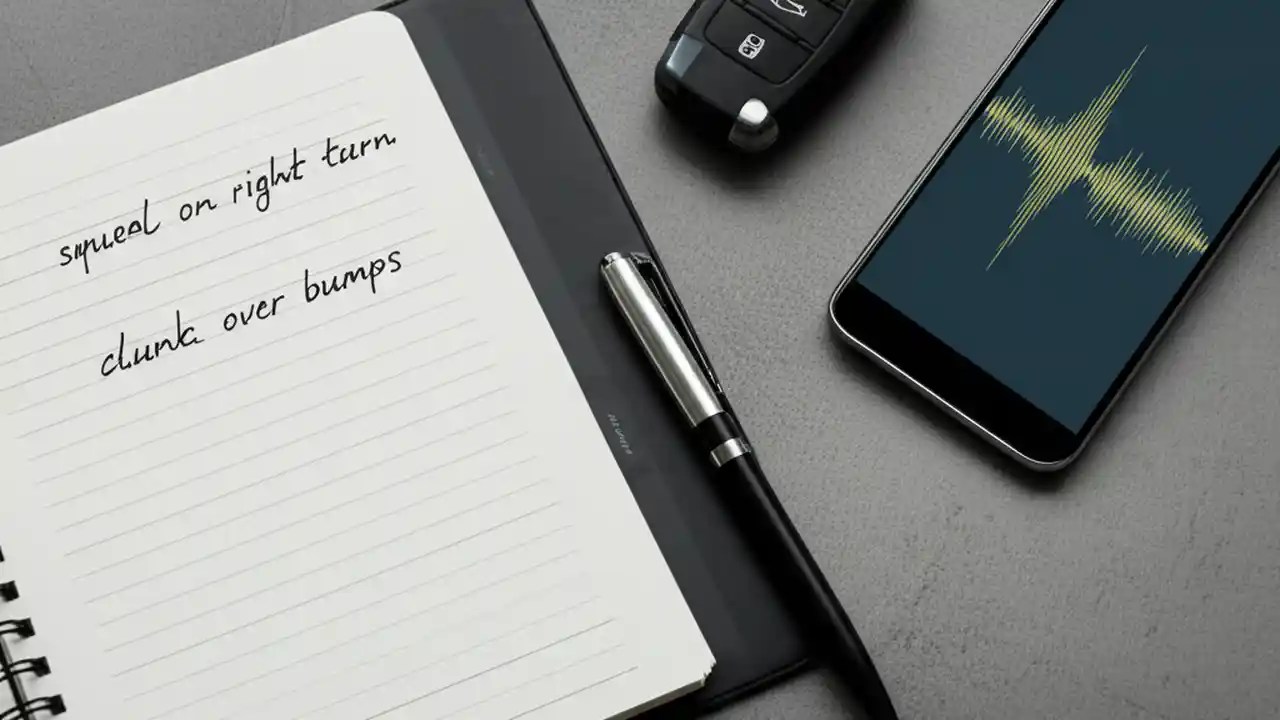 squeal on right turn.
clunk over bumps